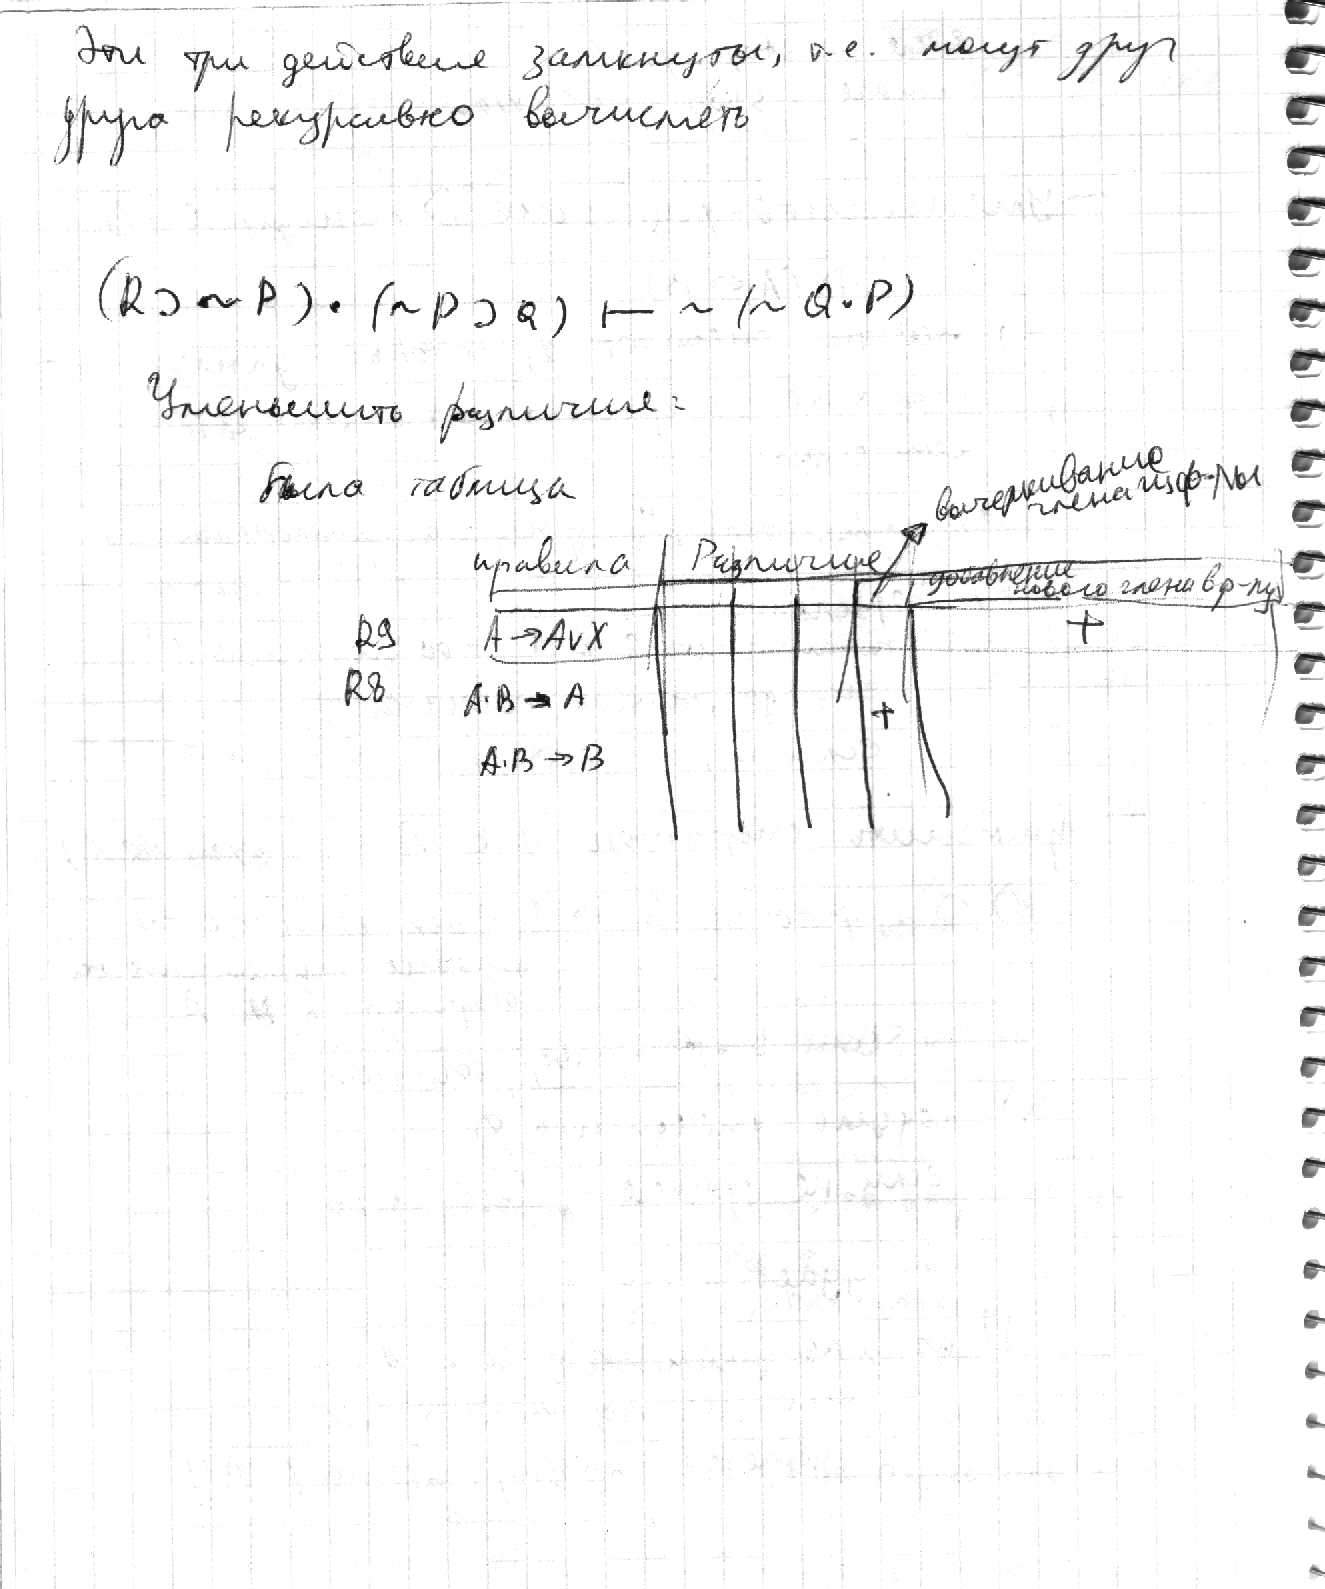 Эти три действие замкнуты, т.е. могут друг
друга рекурсивно вычислять
(R ⊃ ~P) · (~P ⊃ Q) ⊢ ~(~Q · P)
Уменьшить различие:
была таблица
вычеркивание
члена из ф-лы
правила Различие
добавление
нового члена в ф-лу
R9 A → A∨X +
R8 A·B → A +
A·B → B